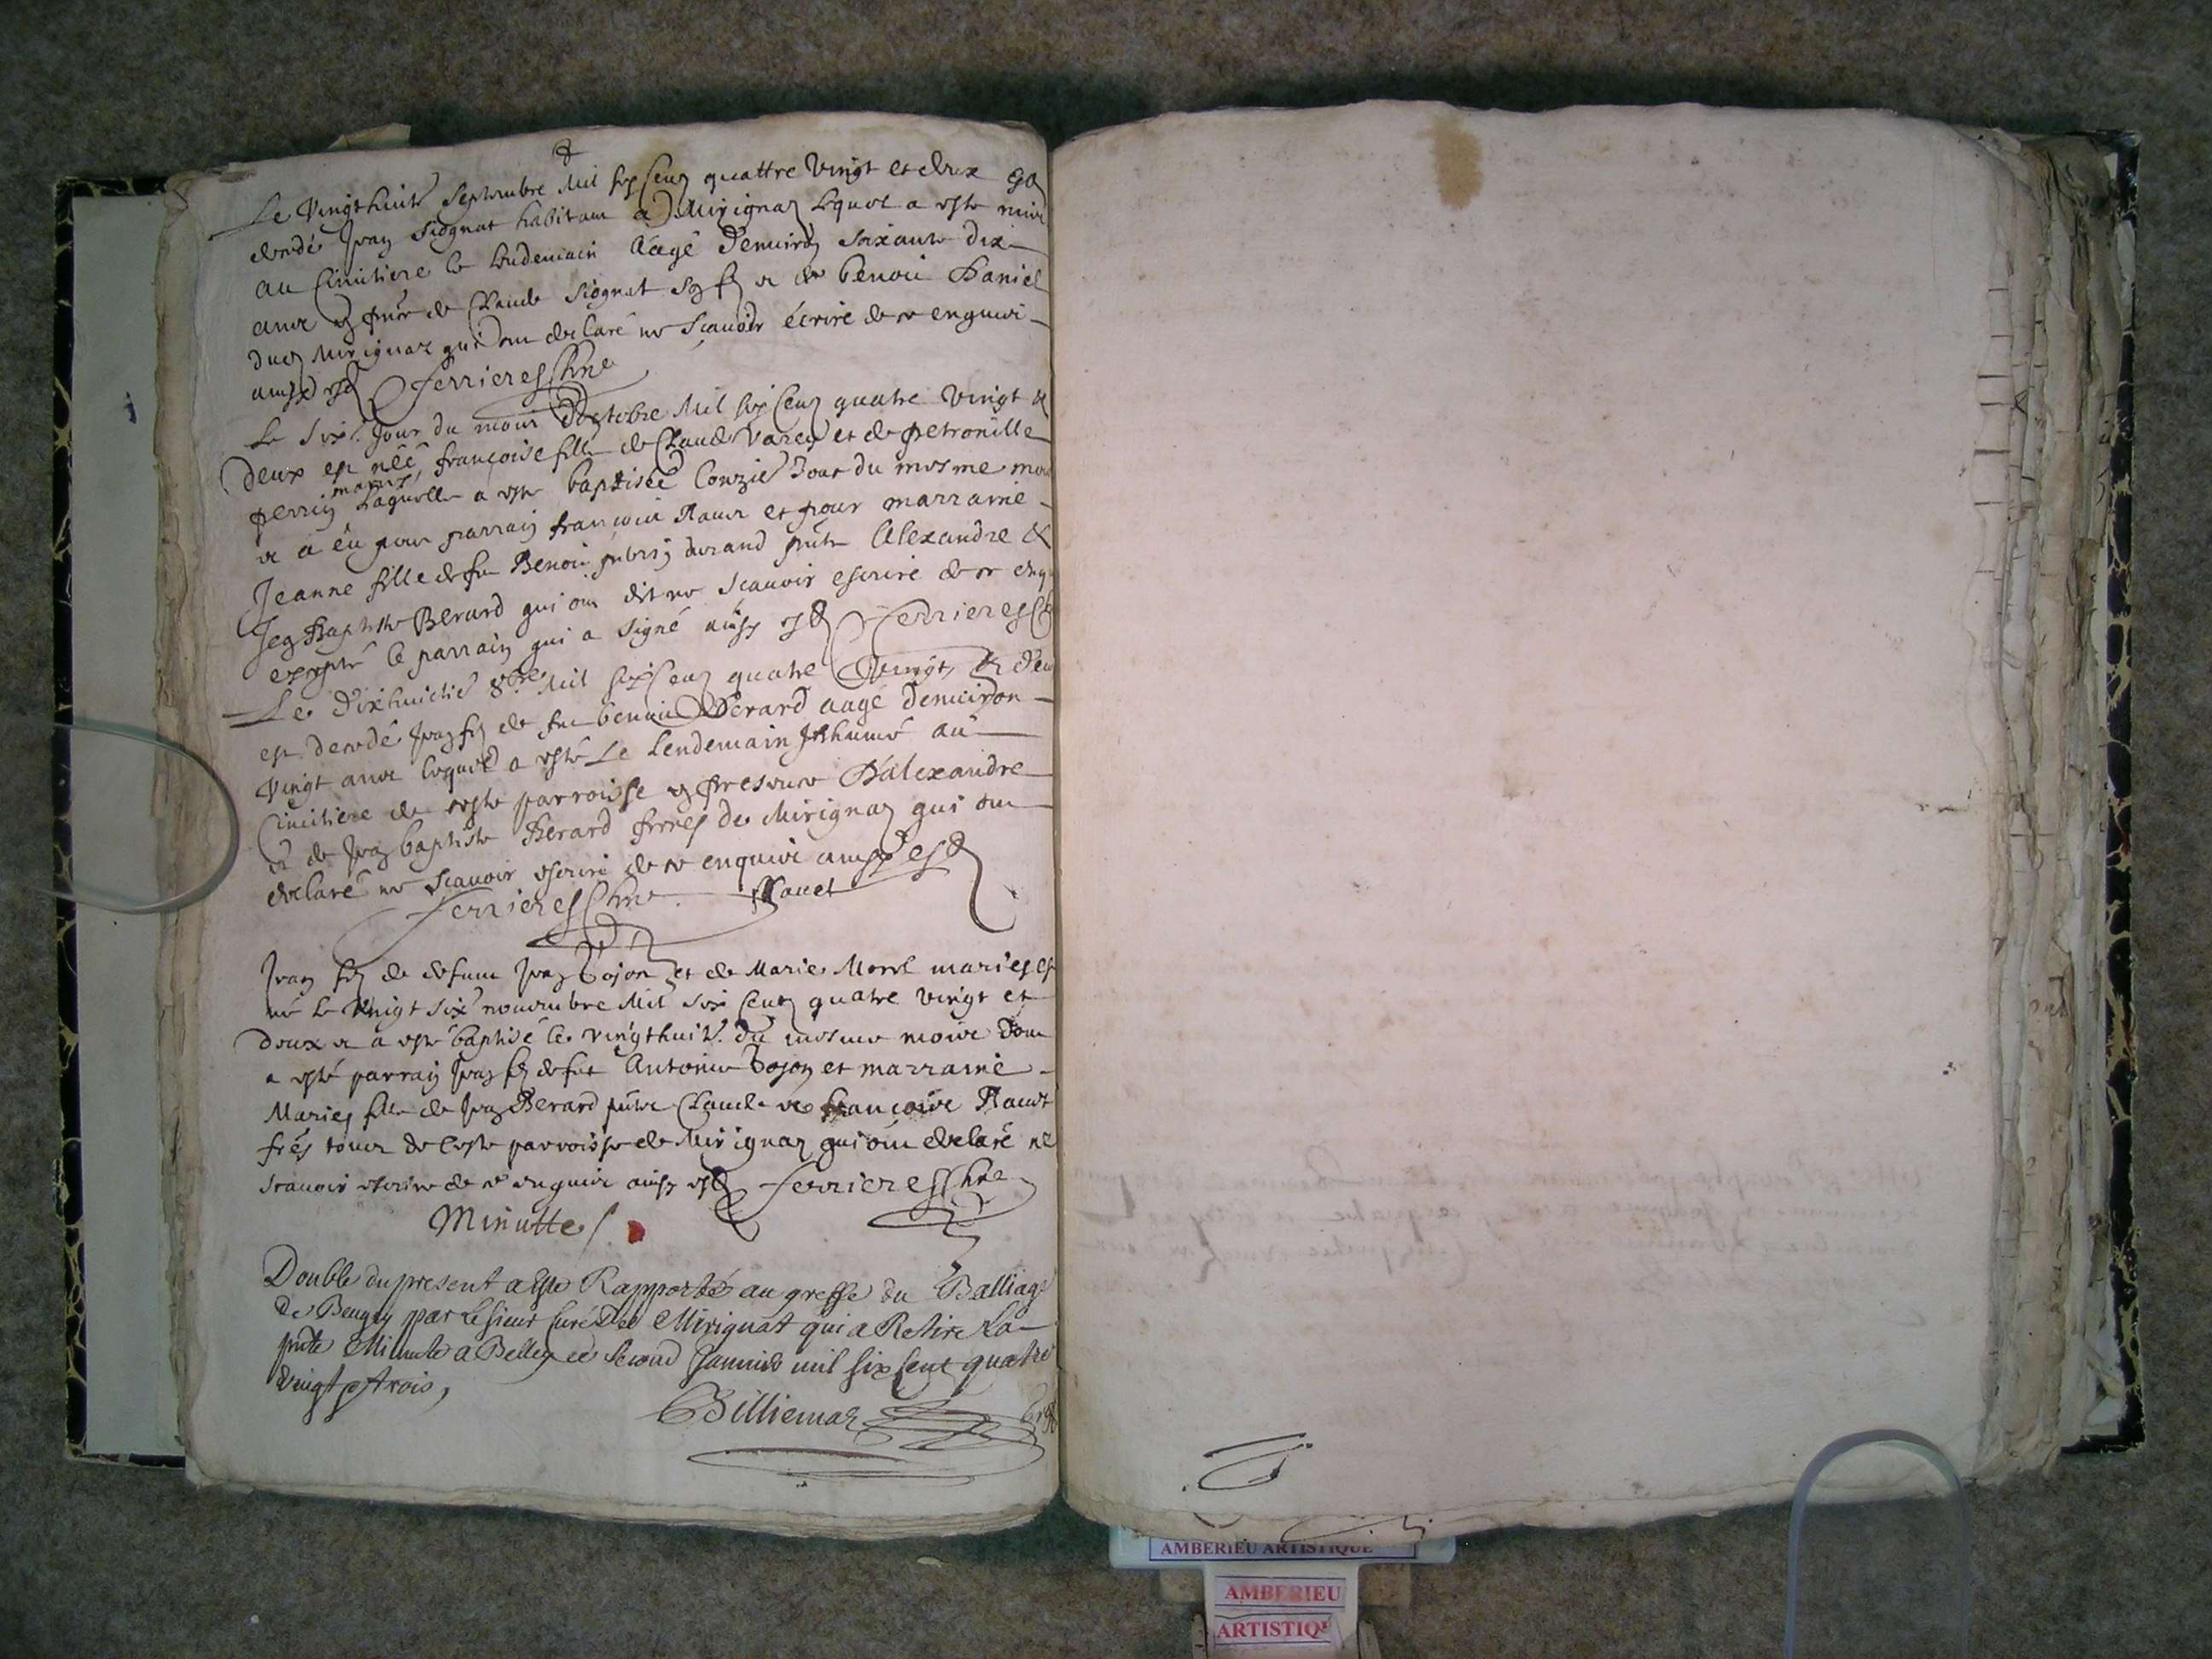 Le Vingthuite Septembre Mil six Cens quattre Vingt et deux est
decedé Jean Siognat habitant a Mirignaz lequel a esté
au Cimitiere le lendemain Aagé d'environ soixante dix
ans en pnce de Claude Siognat son fils et de Benoit Daniel
dud Mirignaz qui ont declaré ne scavoir écrire de ce enquis
ainsy est Ferrieres Cure
Le six.e Jour du mois d'octobre Mil six Cens quatre vingt &
Deux est néé françoise fille de Claude Varey et de petronille
perrin mariez Laquelle a esté baptiséé l'onzie Jour du mesme mois
et a eu pour parrain françois Ravet et pour marraine
Jeanne fille de fu Benoit durand pnte Alexandre &
Jean Baptiste Berard qui ont dit ne scavoir escrire de ce enquis
excepté le parrain qui a signé ainsy est Ferrieres
Le dixhuictie 8bre Mil six Cens quatre Vingt & deux
est decedé Jean fils de fu benoit Berard aagé d'environ
Vingt ans lequel a esté Le Lendemain Inhumé au
Cimitiere de ceste parroisse en presence D'alexandre
et de Jean baptiste Berard freres de Mirignaz qui ont
declaré ne scavoir escrire de ce enquis ainsy est
Ferrieres Cure Ravet
Jean fils de defunt Jean Bojon et de Marie Morel mariez est
né le Vingt six novembre Mil six Cens quatre vingt et
deux et a esté baptisé le vingthuit. du mesme mois dont
a esté parrain Jean fils de fut Antoine Bojon et marraine
Marie fille de Jean Berard pnts Claude et françois Ravet
fres tous de ceste parroisse de Mirignaz qui ont declaré ne
scavoir escrire de ce enquis ainsy est Ferrieres Cure
Minutte
Double du present a esté Rapporté au greffe du Balliage
de Beugey par le sieur Curé de Mirignat qui a Retire La
pnte Minute a Belley ce second Janvier mil six Cent quatre
vingt et trois,
Billiemaz
AMBERIEU ARTISTIQUE
AMBERIEU
ARTISTIQ